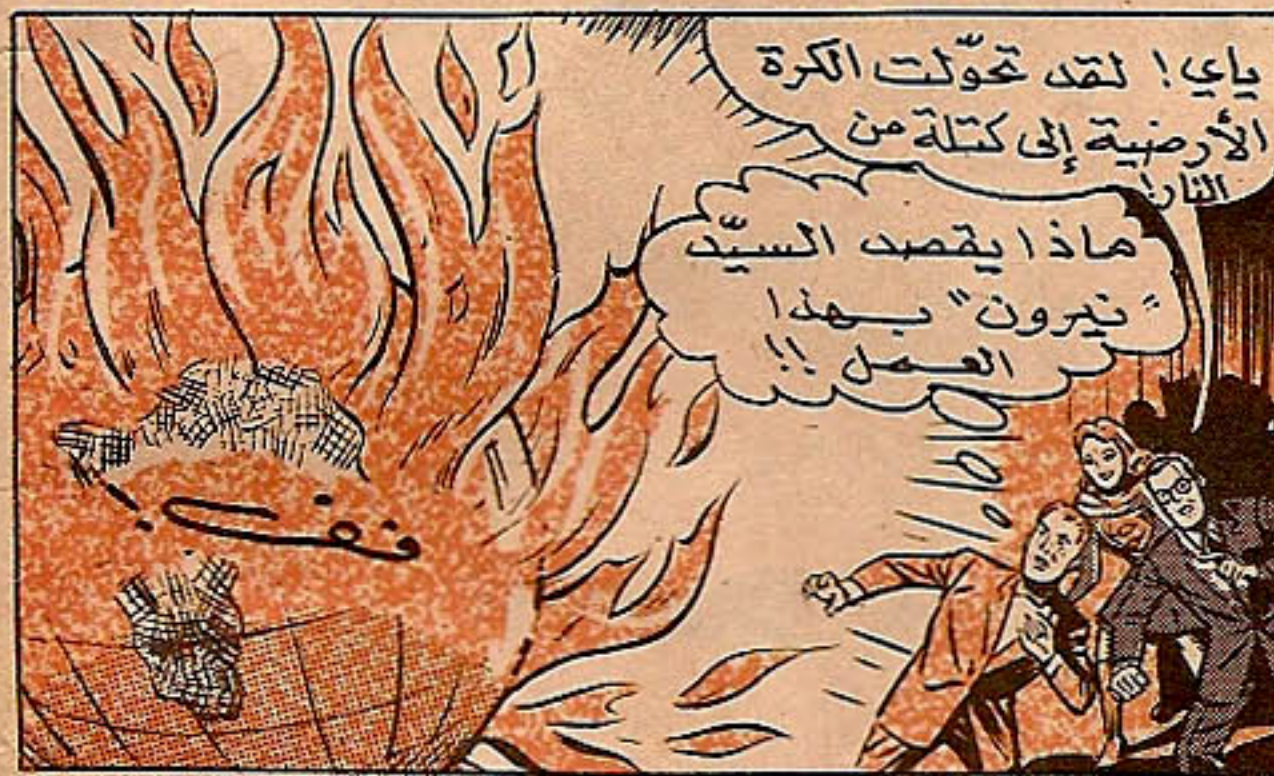 ياي! لقد تحوّلت الكرة
الأرضية إلى كتلة من
النار!
ماذا يقصد السيّد
"نيرون" بهذا
العمل !!